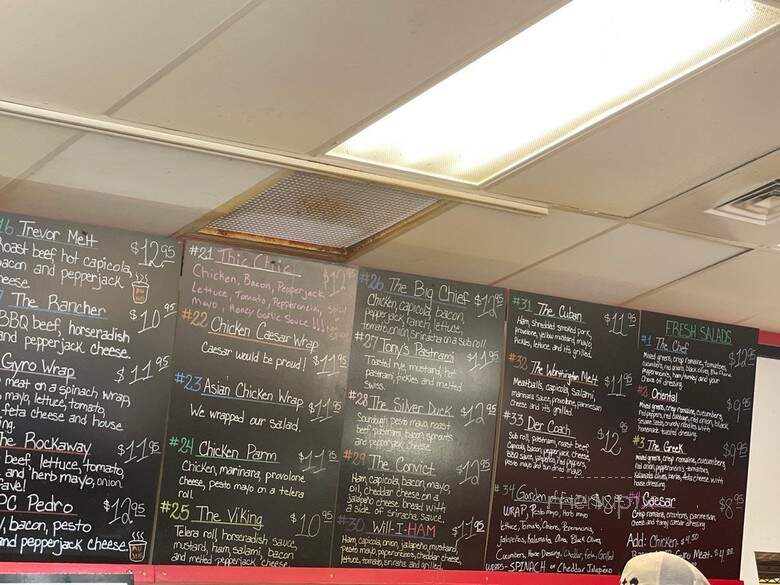 16 Trevor Melt $12.95
Roast beef, hot capicola,
bacon and pepperjack
cheese
The Rancher $10.95
BBQ beef, horseradish
and pepperjack cheese
Gyro Wrap $11.95
meat on a spinach wrap,
mayo, lettuce, tomato,
feta cheese and house
The Rockaway $11.95
beef, lettuce, tomato,
and herb mayo, onion
PC Pedro $12.95
bacon, pesto
and pepperjack cheese
#21 Thic Chic
Chicken, Bacon, Pepperjack
Lettuce, Tomato, Pepperoncini,
Mayo, Honey Garlic Sauce!!!
#22 Chicken Caesar Wrap
Caesar would be proud! $11.95
#23 Asian Chicken Wrap
We wrapped our salad. $11.95
#24 Chicken Parm $11.75
Chicken, marinara, provolone
cheese, pesto mayo on a telera
roll.
#25 The Viking $10.95
Telera roll, horseradish sauce
mustard, ham, salami, bacon
and melted pepperjack cheese
#26 The Big Chief $12.95
Chicken, capicola, bacon
pepper jack, ranch, lettuce,
tomato, onion, sriracha on a sub roll
#27 Tony's Pastrami $11.95
Toasted rye, mustard, hot
pastrami, pickles and melted
swiss.
#28 The Silver Duck $12.95
Sourdough, pesto mayo, roast
beef, pastrami, bacon, sprouts
and pepperjack cheese
#29 The Convict $12.95
Ham, capicola, bacon, mayo,
oil, cheddar cheese on a
jalapeño cheese bread with
a side of sriracha sauce.
#30 Will-I-HAM $11.95
Ham, capicola, onion, jalapeño mustard
Pesto mayo, pepperoncinis, cheddar cheese,
lettuce, tomato, on rye and grilled
#31 The Cuban $11.95
Ham, shredded smoked pork,
provolone, yellow mustard, mayo
pickles, lettuce and its grilled
#32 The Worthington Melt $11.95
Meatballs, capicola, salami,
marinara sauce, provolone, parmesan
cheese and its grilled
#33 Der Coach $12.95
Sub roll, pastrami, roast beef
capicola, bacon, pepperjack cheese,
BBQ sauce, jalapeños, red peppers,
pesto mayo and sun dried mayo
#34 Garden
WRAP, Pesto mayo, herb mayo
Lettuce, Tomato, Onions, Pepperoncinis,
Jalapeños, Kalamata Olives, Black Olives,
Cucumbers, House Dressing, Cheddar, Feta, Grilled
WRAPS-SPINACH or Cheddar Jalapeño
FRESH SALADS
#1 The Chef $12.95
Mixed greens, crisp romaine, tomatoes,
cucumbers, red onion, black olives, blue cheese
pepperoncinis, ham/turkey and your
choice of dressing.
#2 Oriental $9.95
Mixed greens, crisp romaine, cucumbers,
red peppers, red cabbage, red onion, black
sesame seeds, crunchy noodles with
homemade mustard dressing.
#3 The Greek $9.95
Mixed greens, crisp romaine, cucumbers,
red onion, pepperoncini's, tomatoes,
Kalamata olives, feta cheese with
house dressing
#4 Caesar $8.95
Crisp romaine, croutons, parmesan
cheese and tangy caesar dressing
Add: Chicken $4.50
Gyro Meat